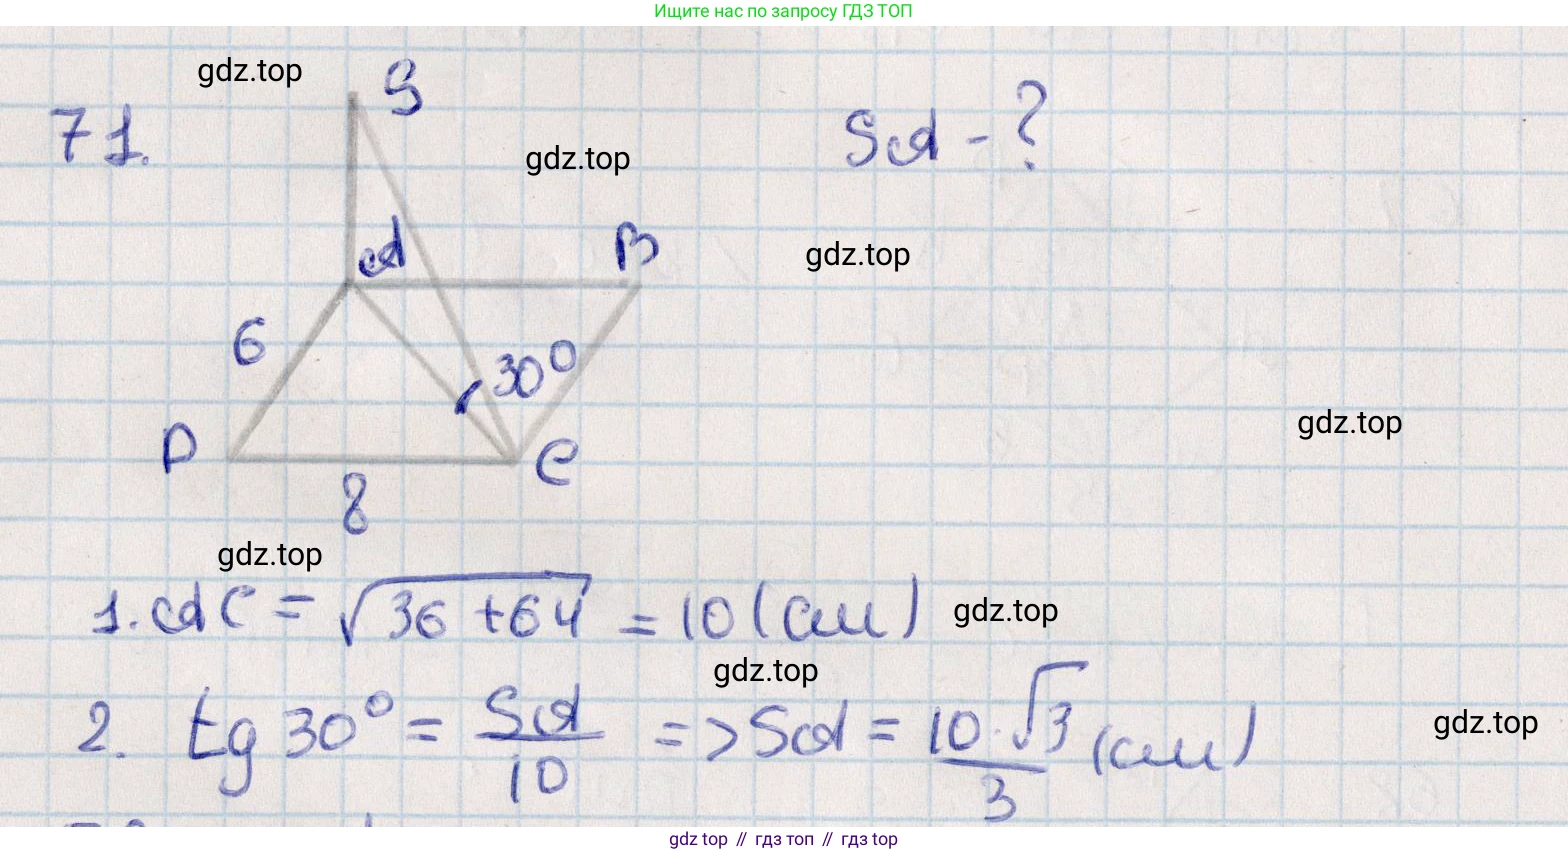 Ищите нас по запросу ГДЗ ТОП
gdz.top
S
71.
SA - ?
gdz.top
A
B
gdz.top
6
30°
gdz.top
D
C
8
gdz.top
1. AC = √36 + 64 = 10 (см)
gdz.top
gdz.top
2. tg 30° = SA/10 => SA = 10·√3/3 (см)
gdz.top
gdz top // гдз топ // gdz top